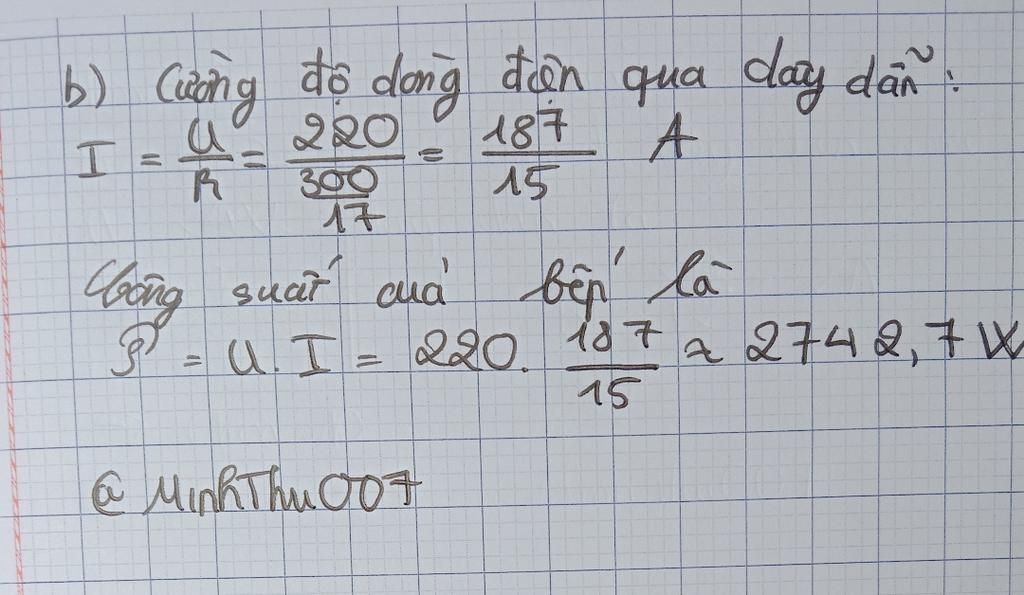 b) Cường độ dòng điện qua dây dẫn:
I = U/R = 220/(300/17) = 187/15 A
Công suất của bếp là
P = U.I = 220. 187/15 ≈ 2742,7 W
@ MinhThu007